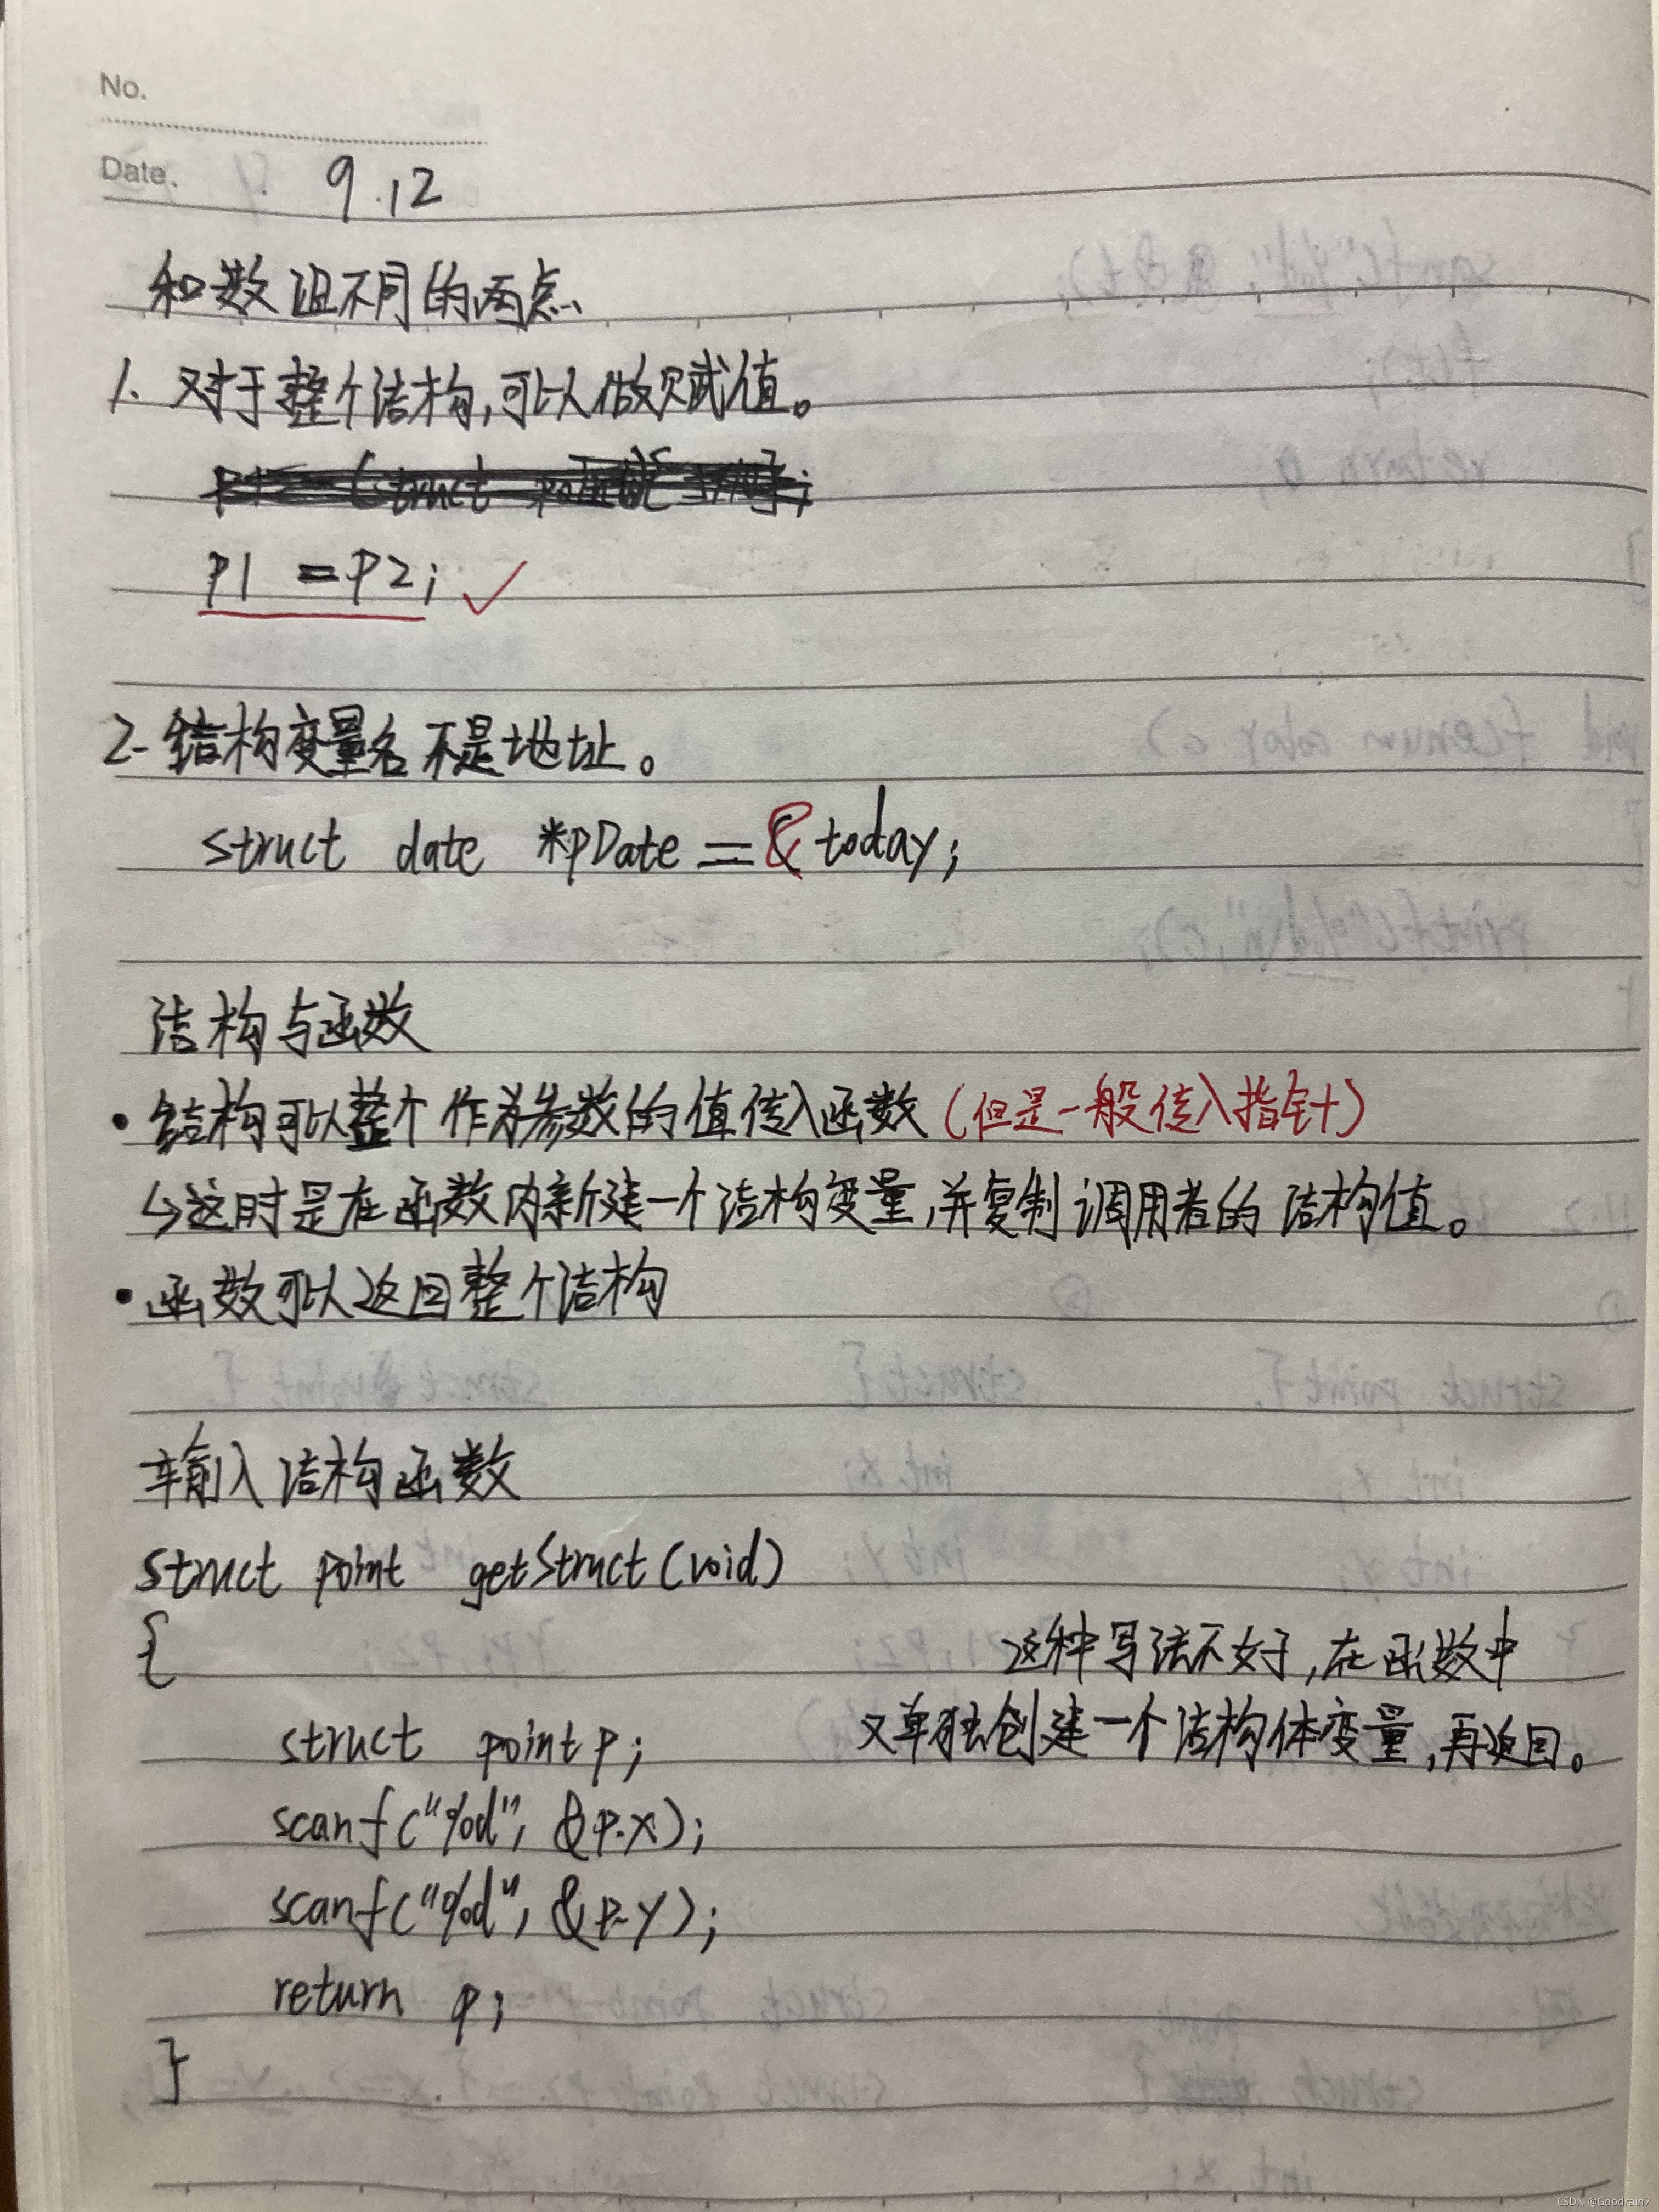 No.
Date. 9.12
和数组不同的两点、
1. 对于整个结构,可以做赋值。
p1 = p2; ✓
2. 结构变量名不是地址。
struct date *pDate = &today;
结构与函数
• 结构可以整个作为参数的值传入函数(但是一般传入指针)
↳这时是在函数内新建一个结构变量,并复制调用者的结构值。
• 函数可以返回整个结构
输入结构函数
struct point getStruct(void)
{
这种写法不好,在函数中
struct point p; 又单独创建一个结构体变量,再返回。
scanf("%d", &p.x);
scanf("%d", &p.y);
return p;
}
CSDN @Goodrain7